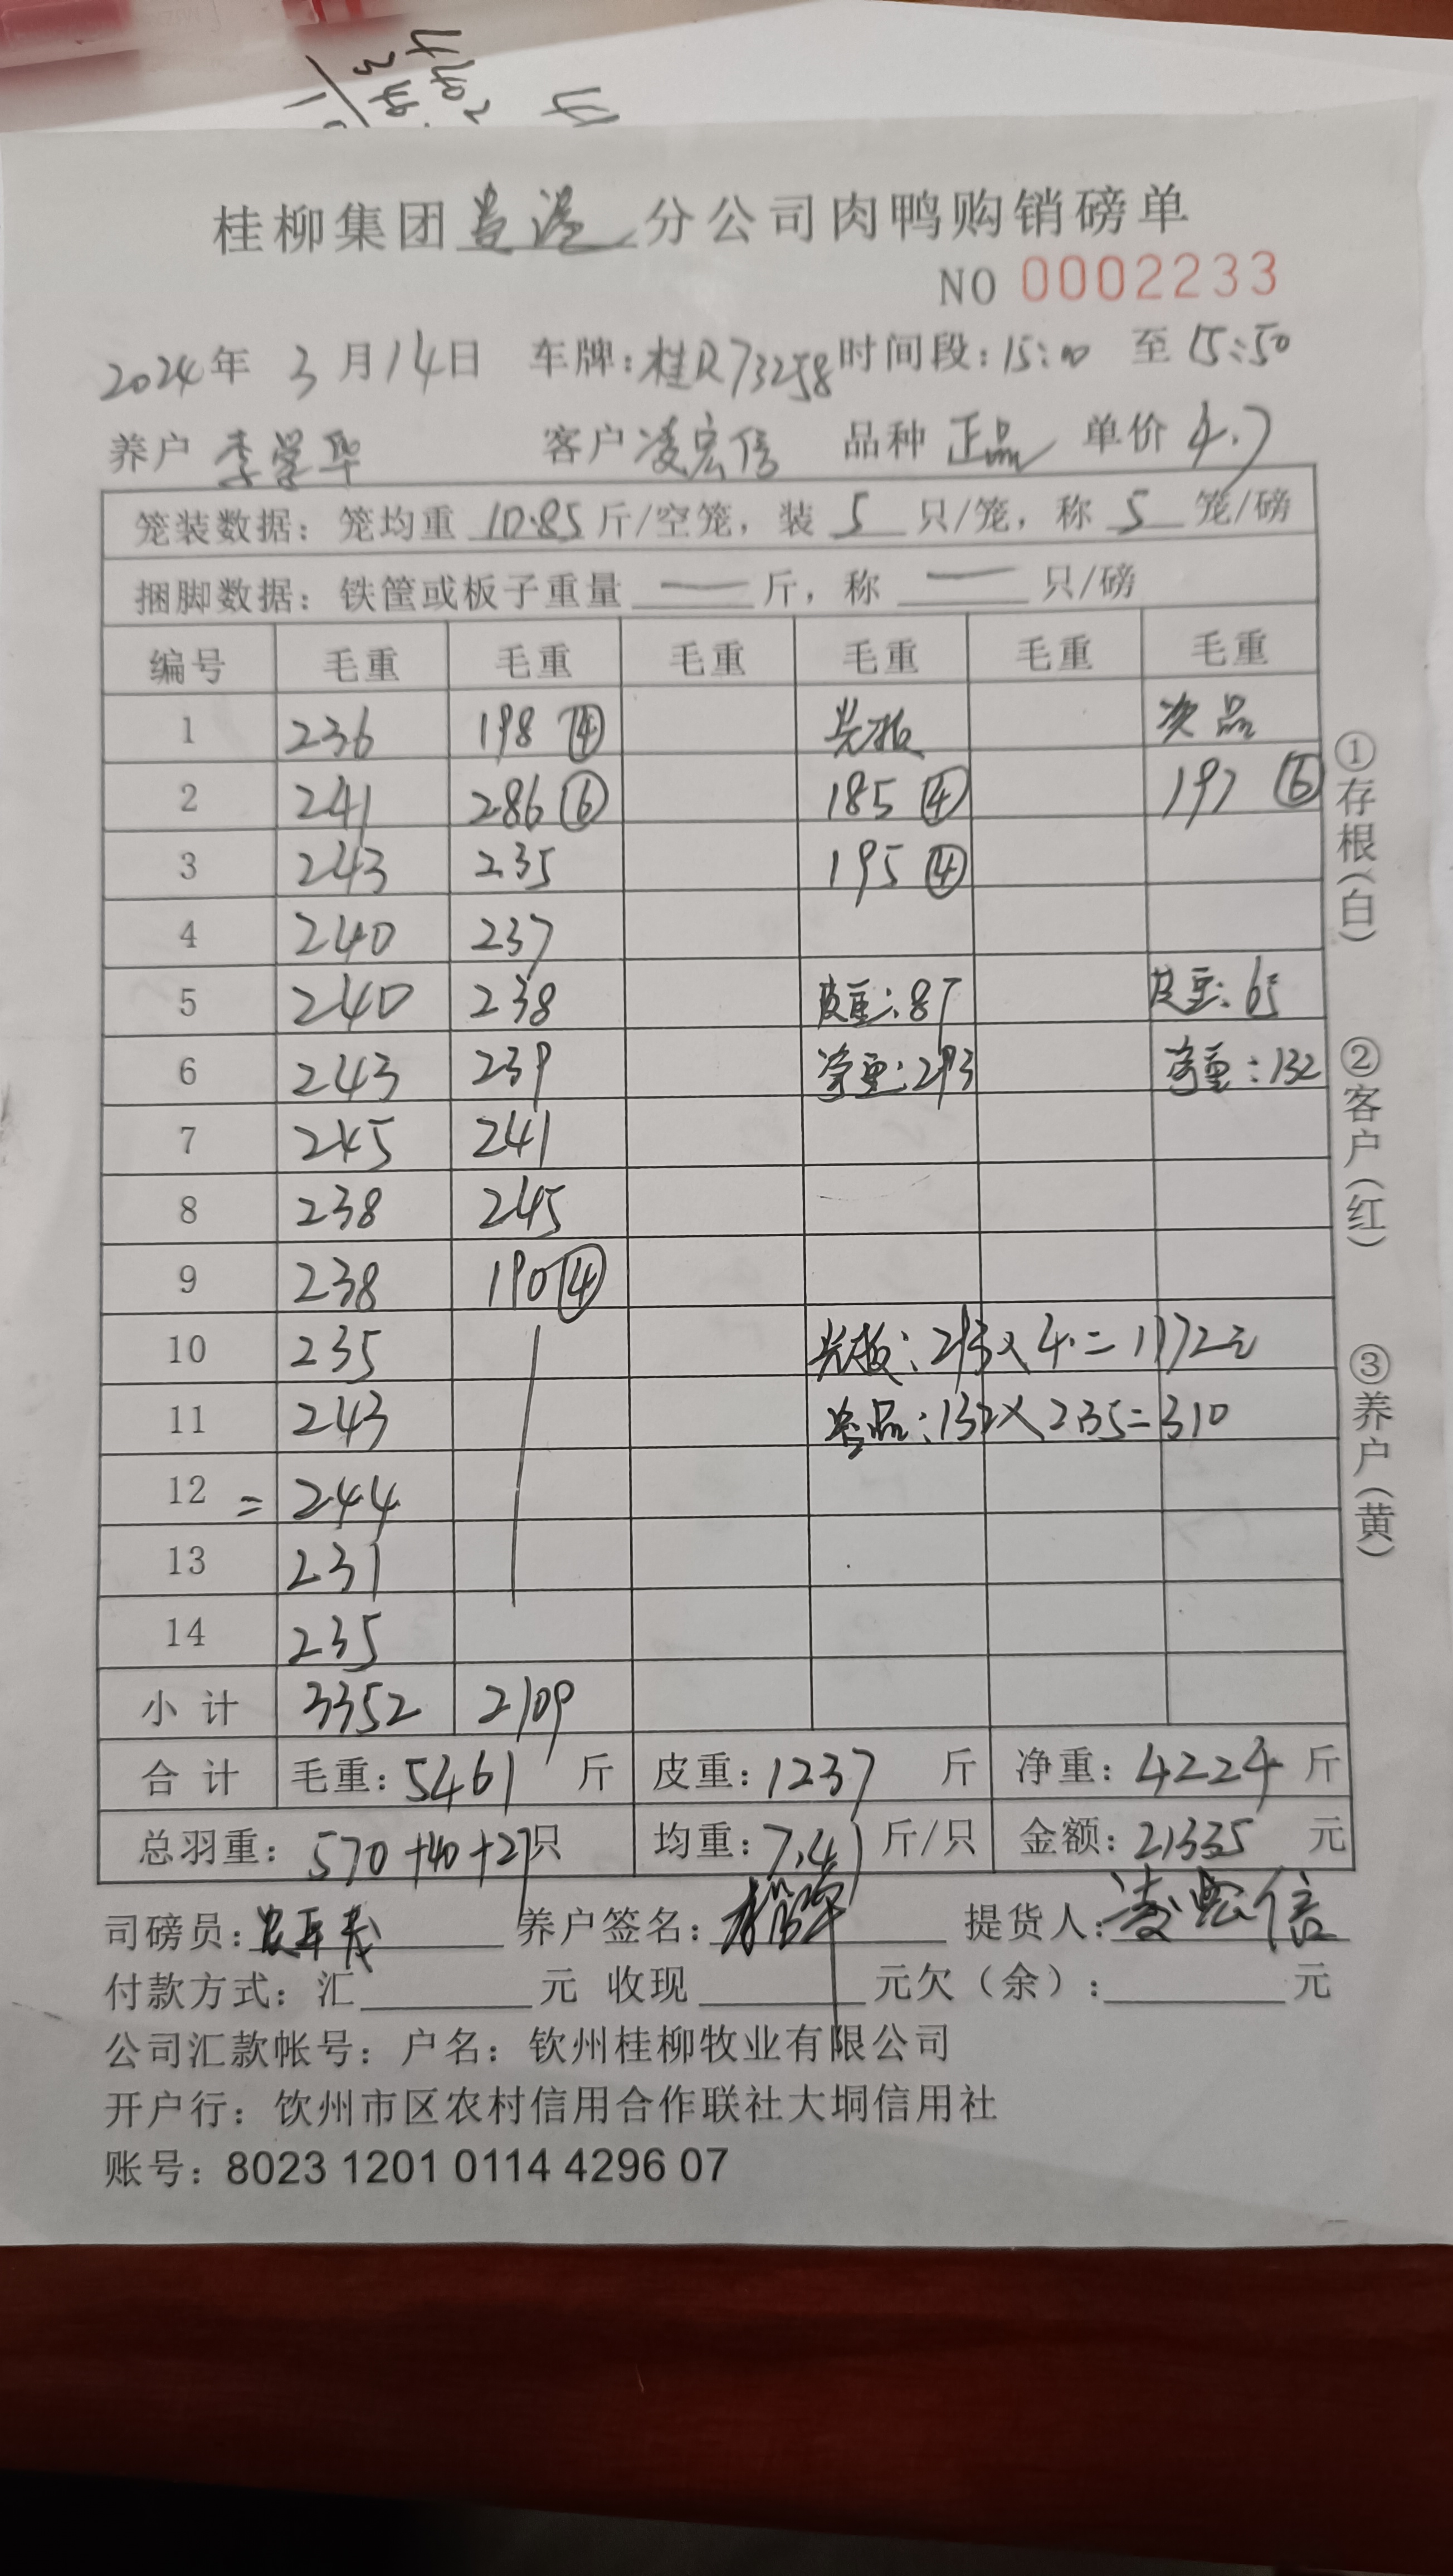 桂柳集团贵港分公司肉鸭购销磅单
NO 0002233
2024年 3月14日 车牌:桂R73258 时间段:15:00 至 15:50
养户 李学华 客户 凌宏信 品种 正品 单价 4.7
笼装数据: 笼均重 10.85 斤/空笼, 装 5 只/笼, 称 5 笼/磅
捆脚数据: 铁筐或板子重量 — 斤, 称 — 只/磅
编号 毛重 毛重 毛重 毛重 毛重 毛重
1 236 198 ④ 光板 次品
2 241 286 ⑥ 185 ④ 197 ⑥
3 243 235 195 ④
4 240 237
5 240 238 皮重:87 皮重:65
6 243 239 净重:293 净重:132
7 245 241
8 238 245
9 238 190 ④
10 235 光板:293×4.=1172元
11 243 次品:132×2.35=310
12 = 244
13 231
14 235
小计 3352 2109
合计 毛重:5461 斤 皮重:1237 斤 净重:4224 斤
总羽重: 570+40+27只 均重:7.41 斤/只 金额:21335 元
司磅员: 养户签名: 提货人:凌宏信
付款方式: 汇 元 收现 元欠(余): 元
公司汇款帐号: 户名: 钦州桂柳牧业有限公司
开户行: 饮州市区农村信用合作联社大垌信用社
账号: 8023 1201 0114 4296 07
①存根(白)
②客户(红)
③养户(黄)